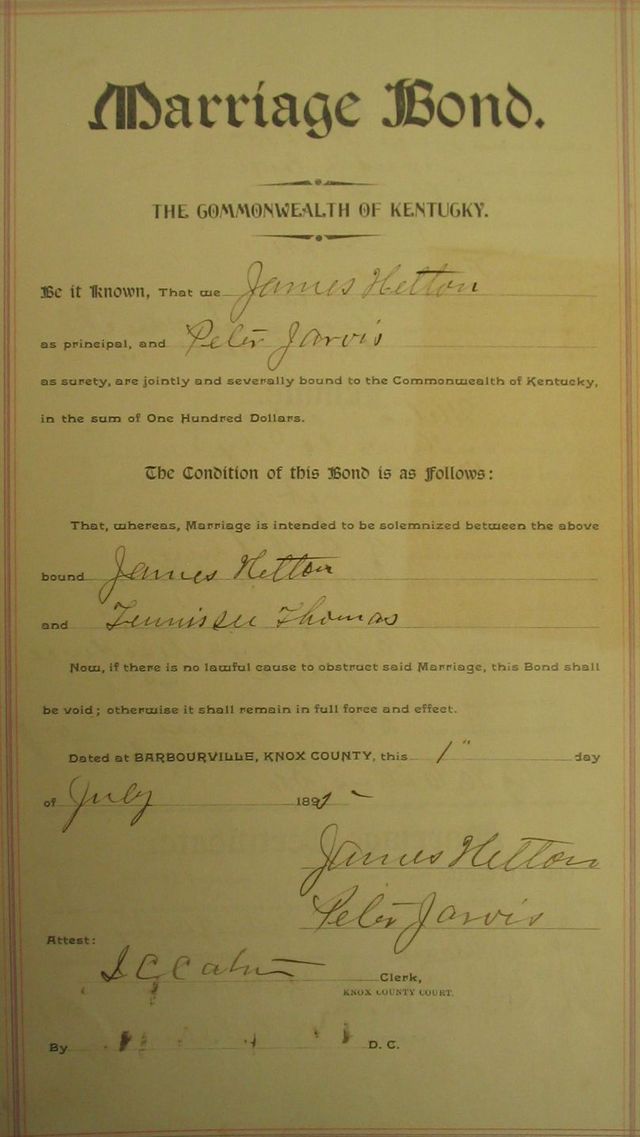 Marriage Bond.
THE COMMONWEALTH OF KENTUCKY.
Be it Known, That we James Hetton
as principal, and Peter Jarvis
as surety, are jointly and severally bound to the Commonwealth of Kentucky,
in the sum of One Hundred Dollars.
The Condition of this Bond is as Follows:
That, whereas, Marriage is intended to be solemnized between the above
bound James Hetton
and Tennissee Thomas
Now, if there is no lawful cause to obstruct said Marriage, this Bond shall
be void; otherwise it shall remain in full force and effect.
Dated at BARBOURVILLE, KNOX COUNTY, this 1" day
of July
James Hetton
Peter Jarvis
Attest:
Clerk,
KNOX COUNTY COURT.
By D. C.